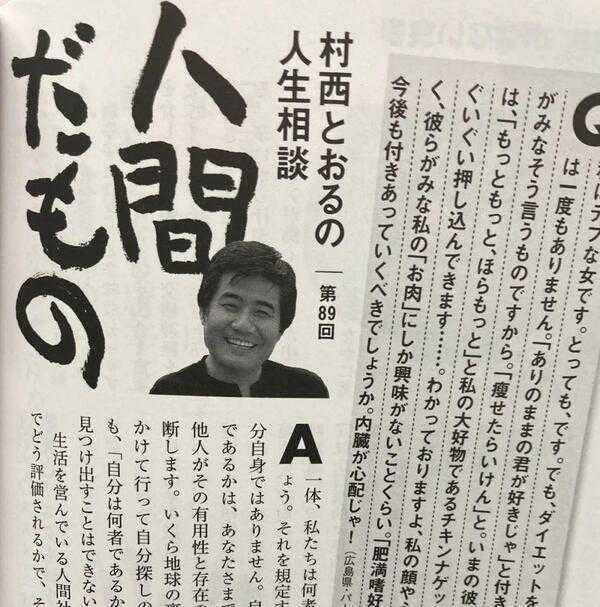 村西とおるの
人生相談
人間
だもの
第89回
Q
にデブな女です。とっても、です。でも、ダイエットを
は一度もありません。「ありのままの君が好きじゃ」と付き
がみなそう言うものですから。「痩せたらいけん」と。いまの彼
は、「もっともっと、ほらもっと」と私の大好物であるチキンナゲッ
ぐいぐい押し込んできます……。わかっておりますよ、私の顔や
く、彼らがみな私の「お肉」にしか興味がないことくらい。「肥満嗜好
今後も付きあっていくべきでしょうか。内臓が心配じゃ!
(広島県・パ
A
一体、私たちは何者
ょう。それを規定す
分自身ではありません。自
であるかは、あなたさまで
他人がその有用性と存在の
断します。いくら地球の裏
かけて行って自分探しの
も、「自分は何者であるか
見つけ出すことはできない
生活を営んでいる人間社
でどう評価されるかで、そ